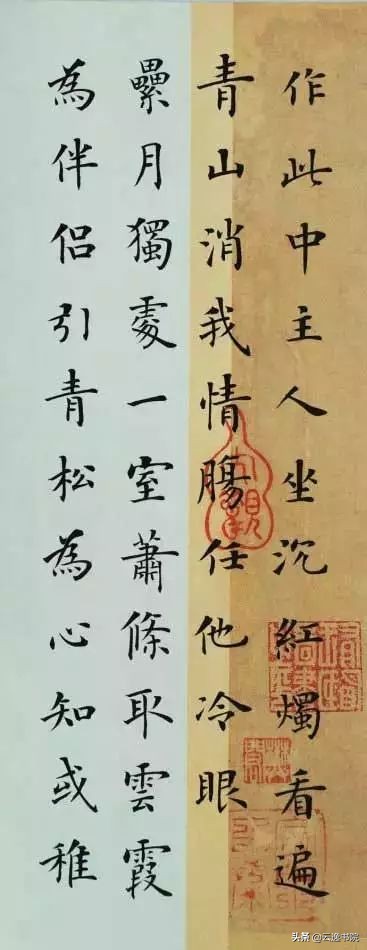 作此中主人坐沉紅燭看遍
青山消我情腸任他冷眼
纍月獨處一室蕭條取雲霞
為伴侣引青松為心知或稚
头条 @云逸书院